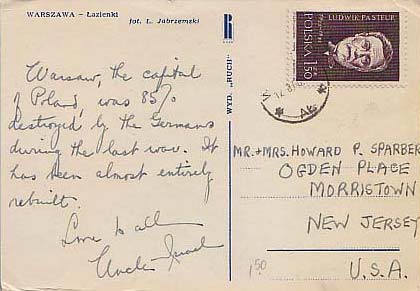 WARSZAWA – Łazienki
fot. L. Jabrzemski
Warsaw, the capital
of Poland, was 85%
destroyed by the Germans
during the last war. It
has been almost entirely
rebuilt.
Love to all
Uncle
WYD. „RUCH"
LUDWIK PASTEUR
POLSKA 1.50
MR. + MRS. HOWARD P. SPARBER
OGDEN PLACE
MORRISTOWN
NEW JERSEY
U.S.A.
1.50